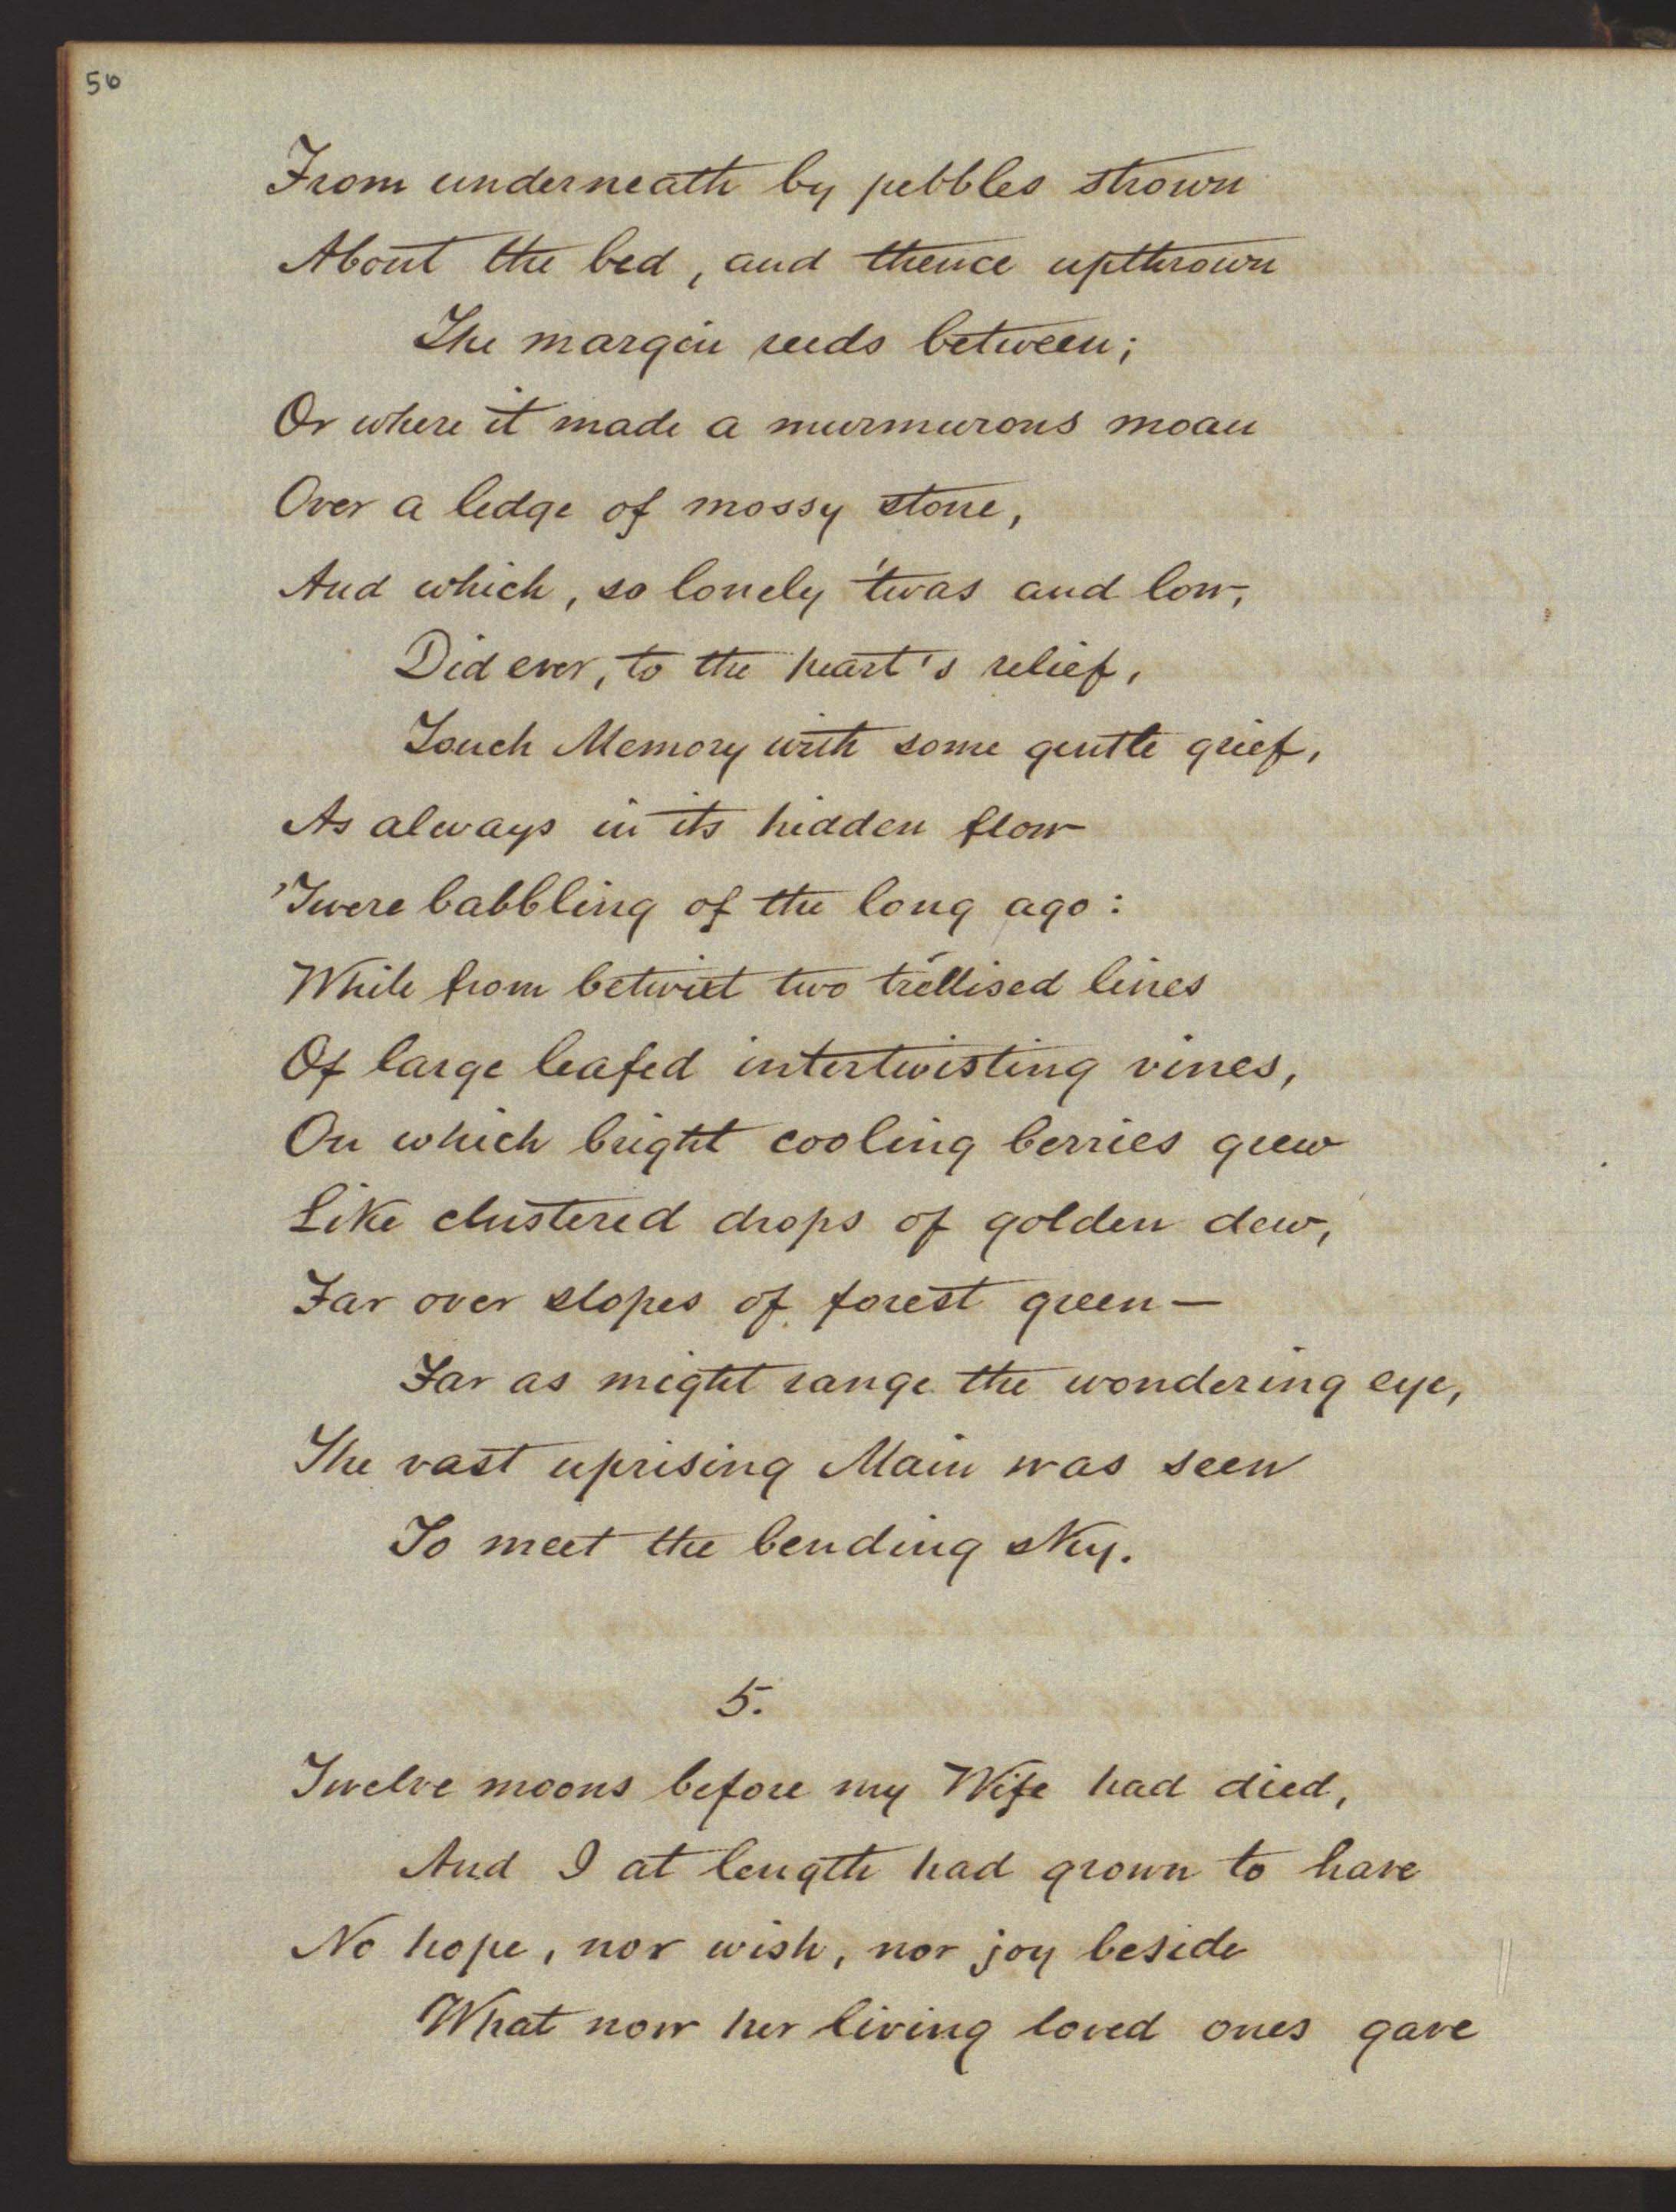 56
From underneath by pebbles strown
About the bed, and thence upthrown
The margin reeds between;
Or where it made a murmurous moan
Over a ledge of mossy stone,
And which, so lonely 'twas and low,
Did ever, to the heart's relief,
Touch Memory with some gentle grief,
As always in its hidden flow
'Twere babbling of the long ago:
While from betwixt two trellised lines
Of large leafed intertwisting vines,
On which bright cooling berries grew
Like clustered drops of golden dew,
Far over slopes of forest green—
Far as might range the wondering eye,
The vast uprising Main was seen
To meet the bending sky.
5.
Twelve moons before my Wife had died,
And I at length had grown to have
No hope, nor wish, nor joy beside
What now her living loved ones gave